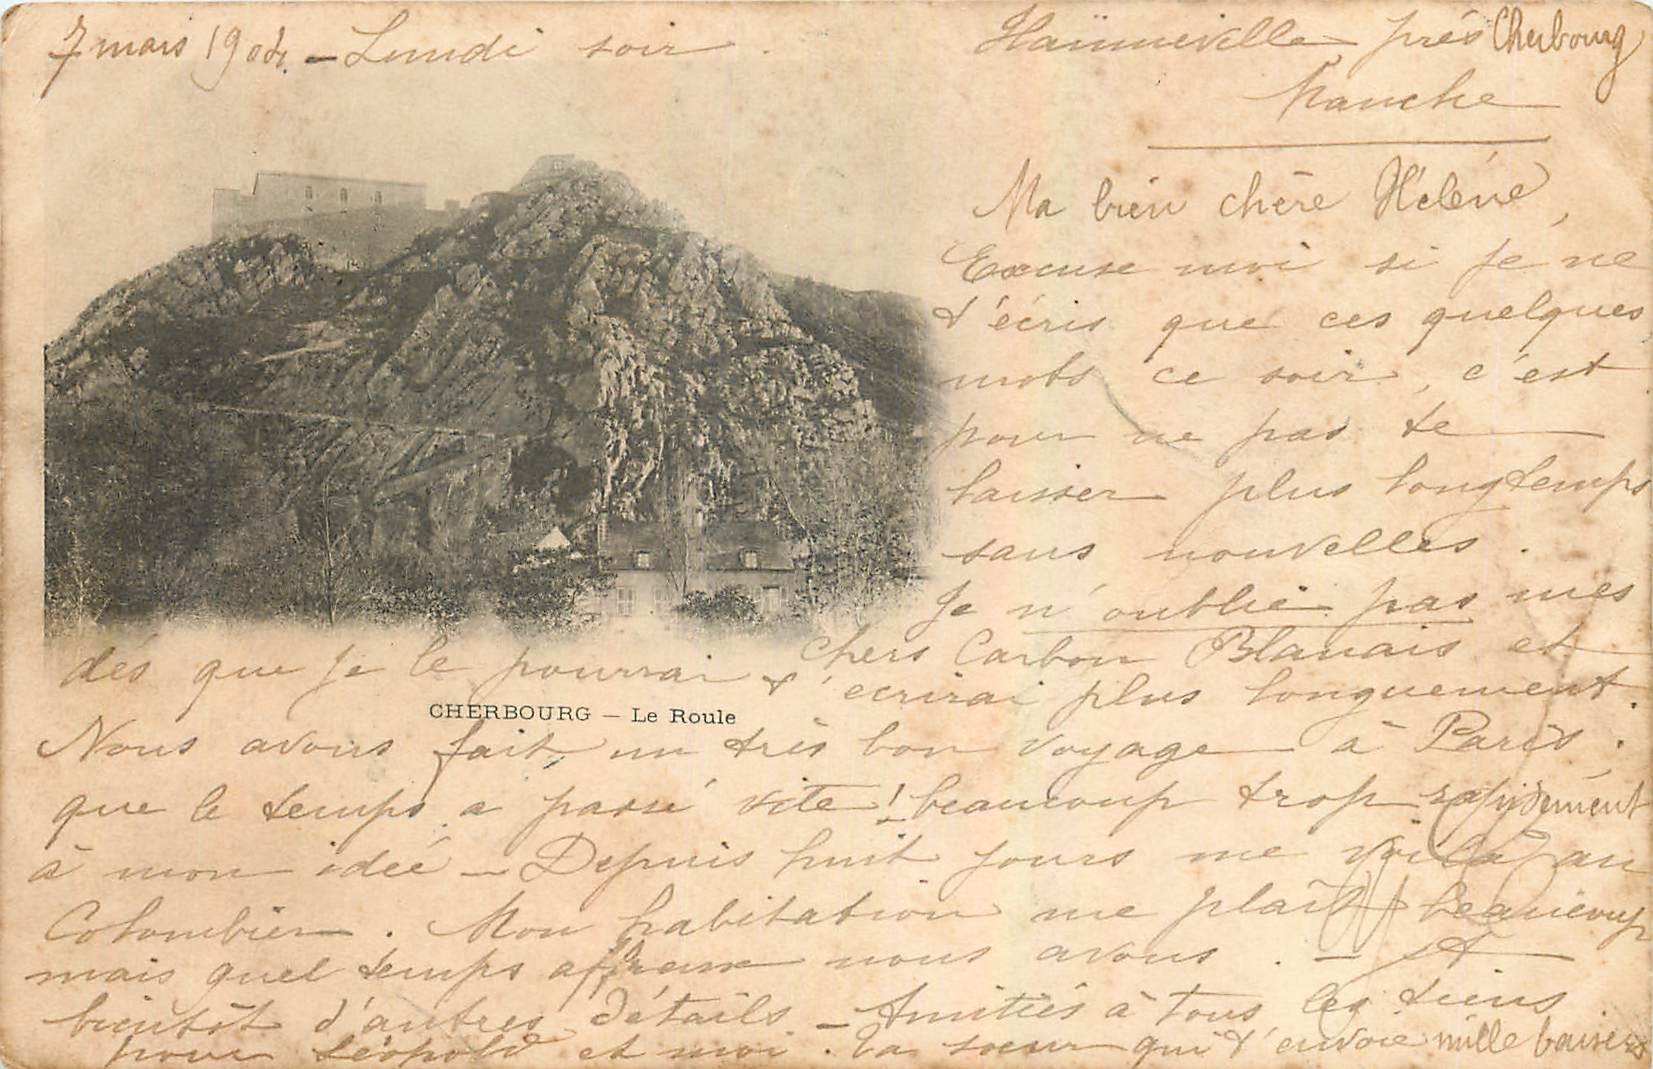 7 mars 1904. - Lundi soir.
Hainneville près Cherbourg
Manche
Ma bien chère Hélène,
Excuse moi si je ne
t'écris que ces quelques
mots ce soir, c'est
pour ne pas te
laisser plus longtemps
sans nouvelles.
Je n'oublie pas mes
chers Carbon Blanais et
dès que je le pourrai t'écrirai plus longuement.
CHERBOURG - Le Roule
Nous avons fait un très bon voyage à Paris.
que le temps a passé vite! beaucoup trop rapidement
à mon idée - Depuis huit jours me voilà au
Colombier. Mon habitation me plaît beaucoup
mais quel temps affreux nous avons. - A
bientôt d'autres détails. - Amitiés à tous les tiens
pour Léopold et moi. Ta soeur qui t'envoie mille baisers